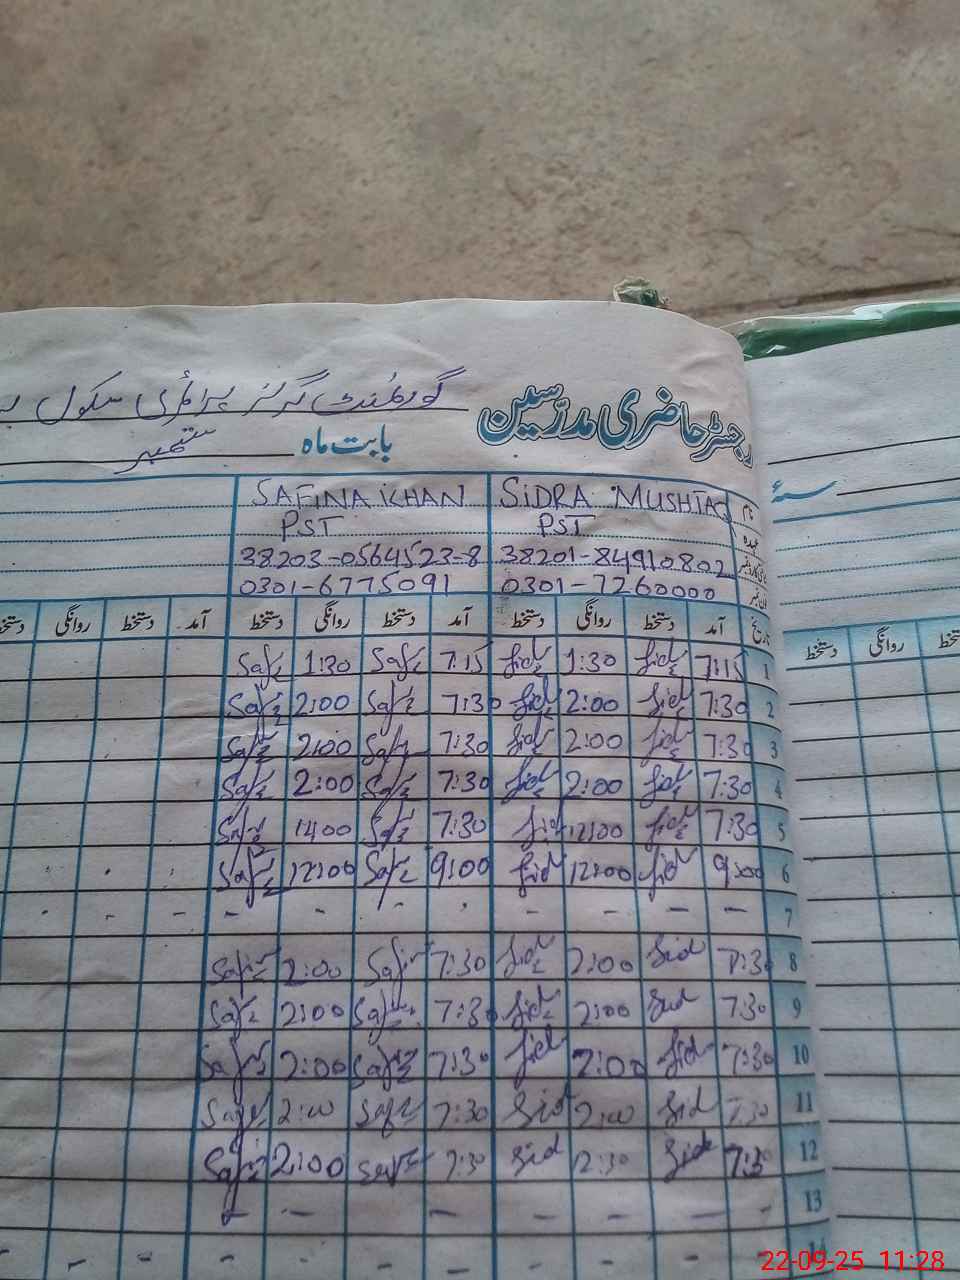 رجسٹر حاضری مدرسین گورنمنٹ گرلز پرائمری سکول
بابت ماہ ستمبر
سنہ
نام SIDRA MUSHTAQ SAFINA KHAN
عہدہ PST PST
38201-84910802 38203-0564523-8
0301-7260000 0301-6775091
تاریخ آمد دستخط روانگی دستخط آمد دستخط روانگی دستخط آمد دستخط روانگی دستخط
دستخط روانگی دستخط
1 7:15 Sid 1:30 Sid 7:15 Saf 1:30 Saf
2 7:30 Sid 2:00 Sid 7:30 Saf 2:00 Saf
3 7:30 Sid 2:00 Sid 7:30 Saf 2:00 Saf
4 7:30 Sid 2:00 Sid 7:30 Saf 2:00 Saf
5 7:30 Sid 12:00 Sid 7:30 Saf Saf
6 9:00 Sid 12:00 Sid 9:00 Saf 12:00 Saf
7 - - - - - - - -
8 7:30 Sid 2:00 Sid 7:30 Saf 2:00 Saf
9 7:30 Sid 2:00 Sid 7:30 Saf 2:00 Saf
10 7:30 Sid 2:00 Sid 7:30 Saf 2:00 Saf
11 7:30 Sid 2:00 Sid 7:30 Saf 2:00 Saf
12 7:30 Sid 12:30 Sid 7:30 Saf 2:00 Saf
13 - - - - - - - -
14 - - - - - - - -
22-09-25 11:28